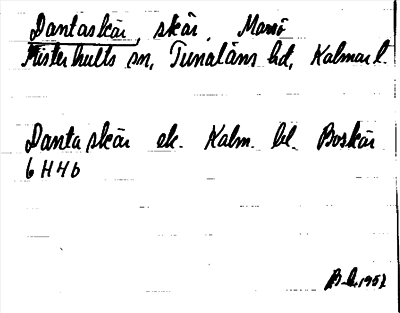 Dantaskär, skär, Marsö
Misterhults sn, Tunaläns hd, Kalmar l.
Dantaskär ek. Kalm. bl. Boskär
6 H 4 b
1957